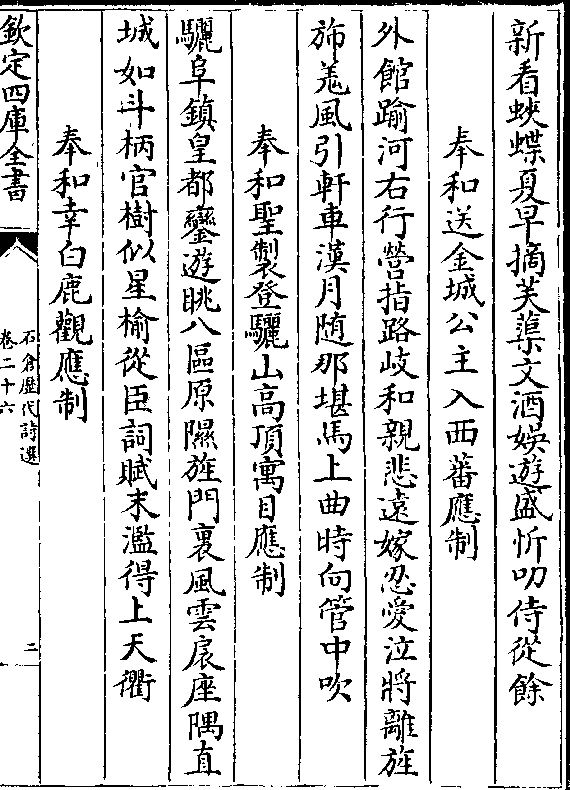 新看蛺蝶夏早摘芙蕖文酒娯遊盛忻叨侍從餘
奉和送金城公主入西蕃應制
外館踰河右行營指路歧和親悲遠嫁忍愛泣將離旌
斾羗風引軒車漢月随那堪馬上曲時向管中吹
奉和聖製登驪山高頂寓目應制
驪阜鎮皇都鑾遊眺八區原隰旌門裏風雲扆座隅直
城如斗柄官樹似星榆從臣詞賦末濫得上天衢
奉和幸白鹿觀應制
欽定四庫全書
石倉歴代詩選
卷二十六
二